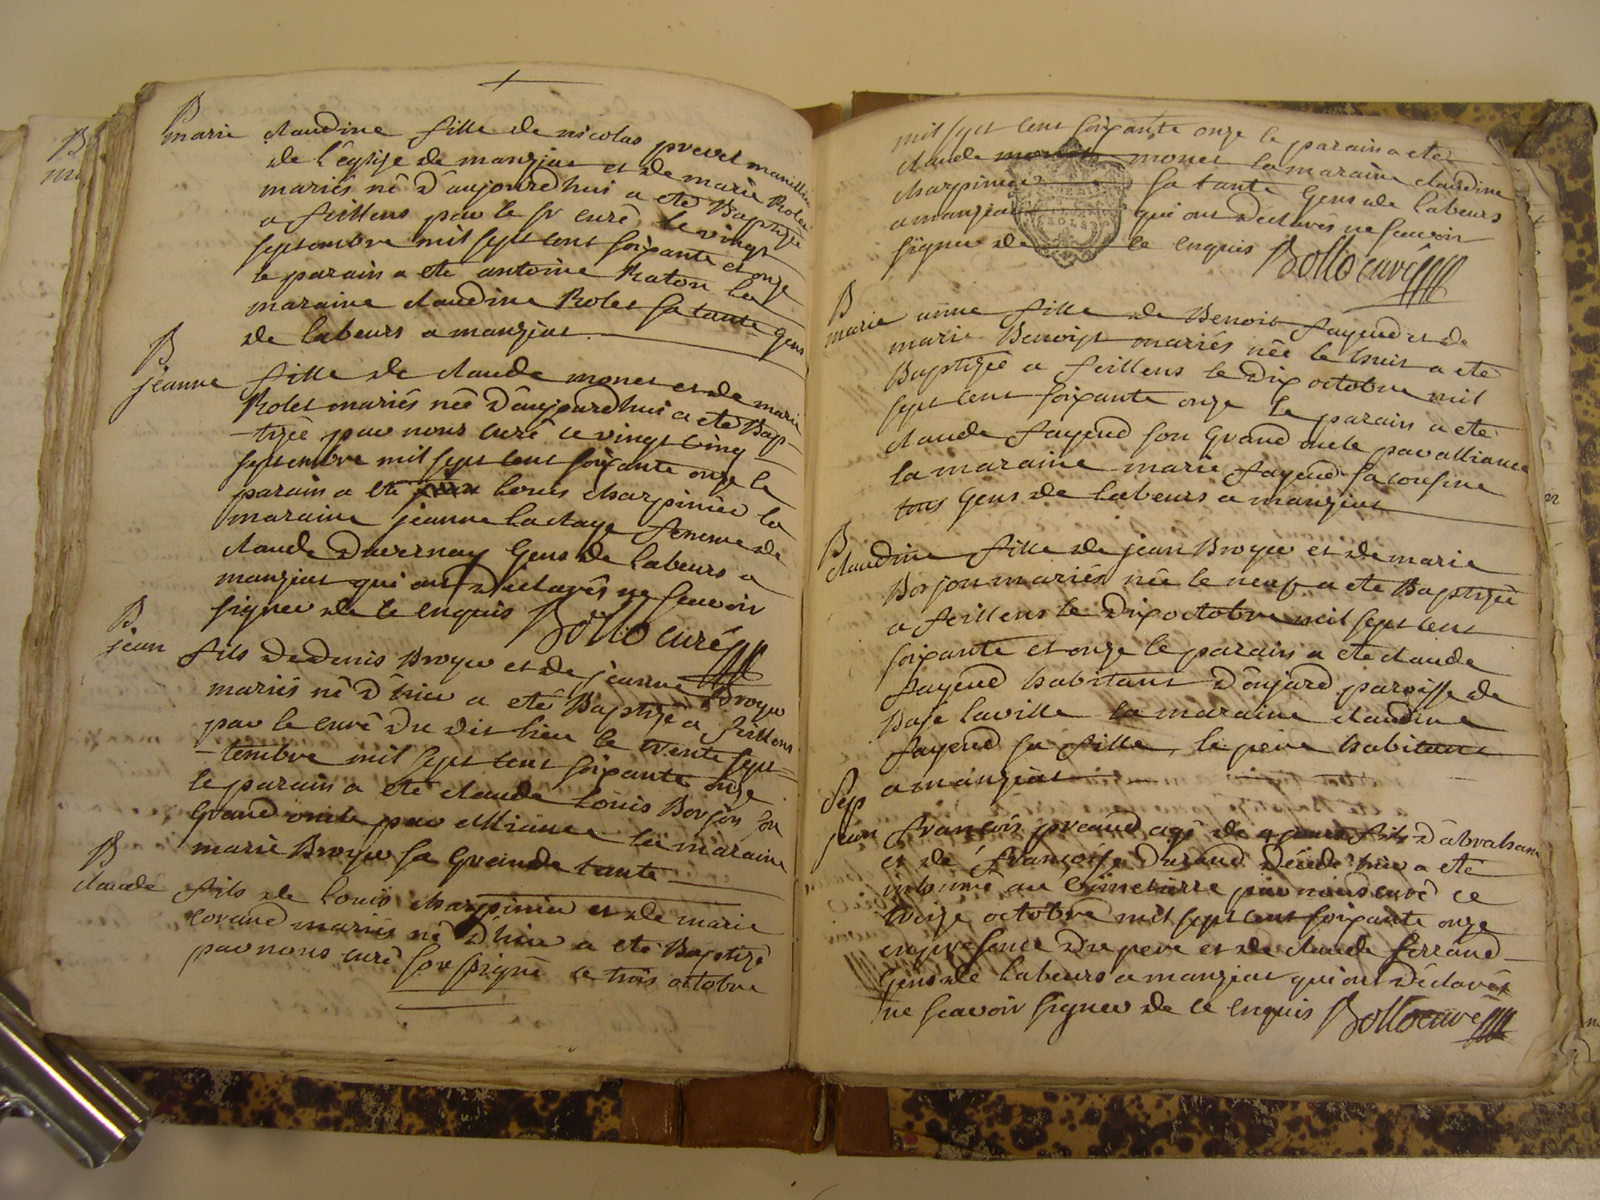 B
marie claudine fille de nicolas prevel manillier
de l'église de manziat et de marie Rolet
mariés né d'aujourdhui a eté Baptizé
a feillens par le sr curé le vingt
septembre mil sept cent soixante et onze
le parain a eté antoine Raton la
maraine claudine Rolet sa tante gens
de labeurs a manziat
B
jeanne fille de claude monet et de marie
Rolet mariés née d'aujourdhui a eté Bap-
-tizée par nous curé ce vingt cinq
septembre mil sept cent soixante onze le
parain a eté louis charpinier la
maraine jeanne laclaye femme de
claude duvernay gens de labeurs a
manziat qui ont déclarés ne scavoir
signer de ce enquis Bollo curé
B
jean fils de denis Broyer et de jeanne Broyer
mariés né d'hier a eté Baptizé a feillens
par le curé du dit lieu le trente sept-
-tembre mil sept cent soixante onze
le parain a eté claude louis Borjon son
Grand oncle par alliance la maraine
marie Broyer sa Grande tante
B
claude fils de louis charpinier et de marie
corand mariés né d'hier a eté Baptizé
par nous curé soussigné ce trois octobre
mil sept cent soixante onze le parain a eté
claude monet la maraine claudine
charpinier sa tante Gens de labeurs
a manziat qui ont declarés ne scavoir
signer de ce enquis Bollo curé
B
marie anne fille de Benoit fayend et de
marie Benoist mariés née le huit a eté
Baptizée a feillens le dix octobre mil
sept cent soixante onze le parain a eté
claude fayend son Grand oncle par alliance
la maraine marie fayend sa cousine
tous Gens de labeurs a manziat
B
claudine fille de jean Broyer et de marie
Borjon mariés née le neuf a eté Baptizée
a feillens le dix octobre mil sept cent
soixante et onze le parain a eté claude
fayend habitant d'onjard paroisse de
Bage laville la maraine claudine
fayend sa fille, le pere habitant
a manziat
Sep
jean françois preaud agé de fils d'abraham
et de françoise Durand décédé hier a eté
inhumé au cimetierre par nous curé ce
treize octobre mil sept cent soixante onze
en presence du pere et de claude ferrand
Gens de labeurs a manziat qui ont déclarés
ne scavoir signer de ce enquis Bollo curé